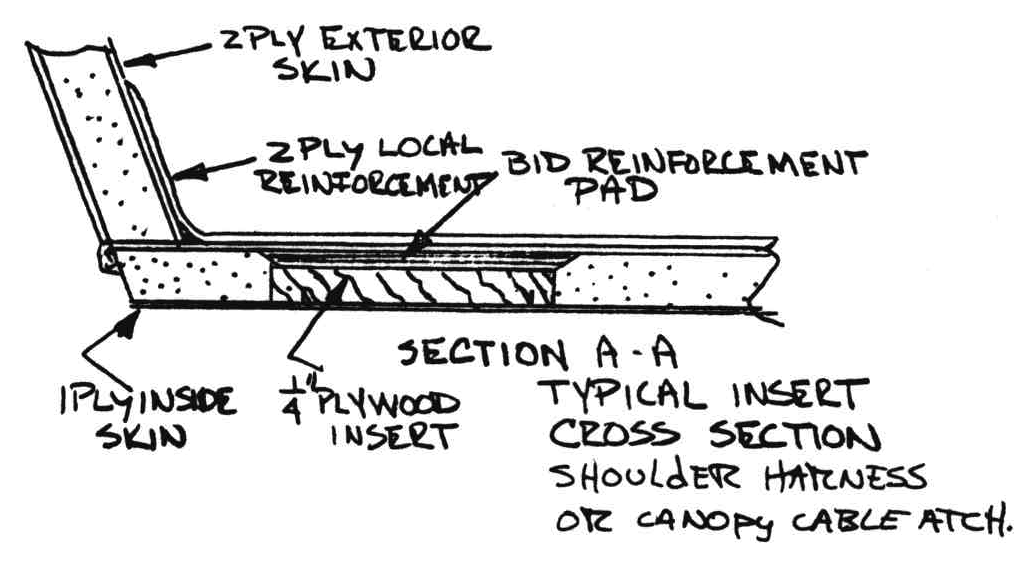 2 PLY EXTERIOR
SKIN
2 PLY LOCAL
REINFORCEMENT
BID REINFORCEMENT
PAD
1 PLY INSIDE
SKIN
1/4" PLYWOOD
INSERT
SECTION A-A
TYPICAL INSERT
CROSS SECTION
SHOULdER HARNESS
OR CANOPy CABLE ATCH.